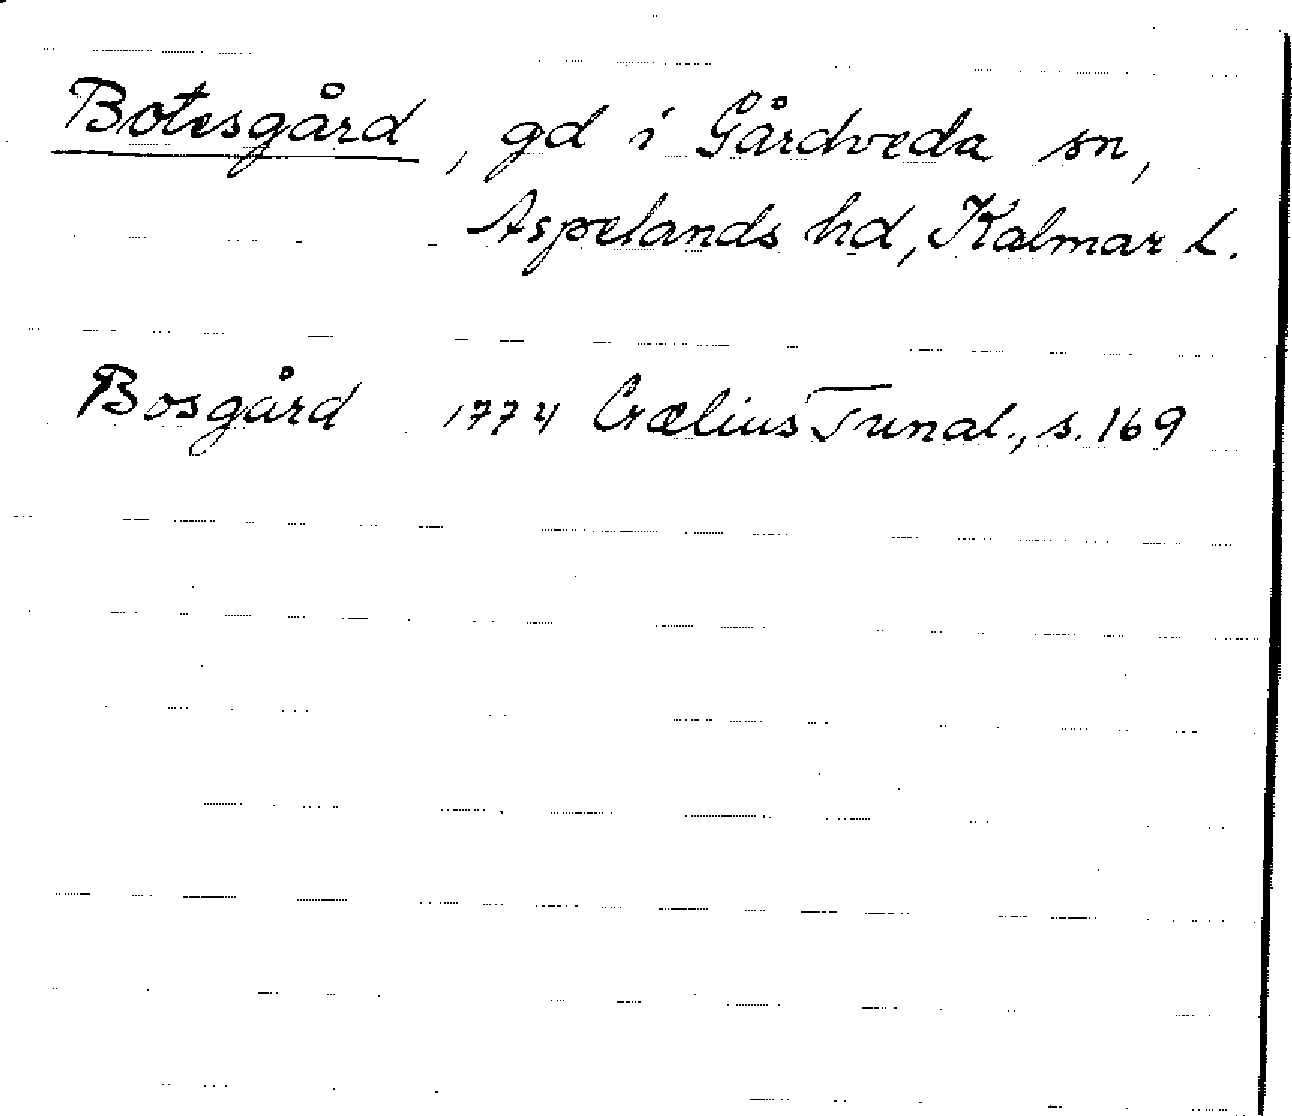 Botesgård, gd i Gårdveda sn,
Aspelands hd, Kalmar L.
Bosgård 1774 Crælius Tunal., s. 169